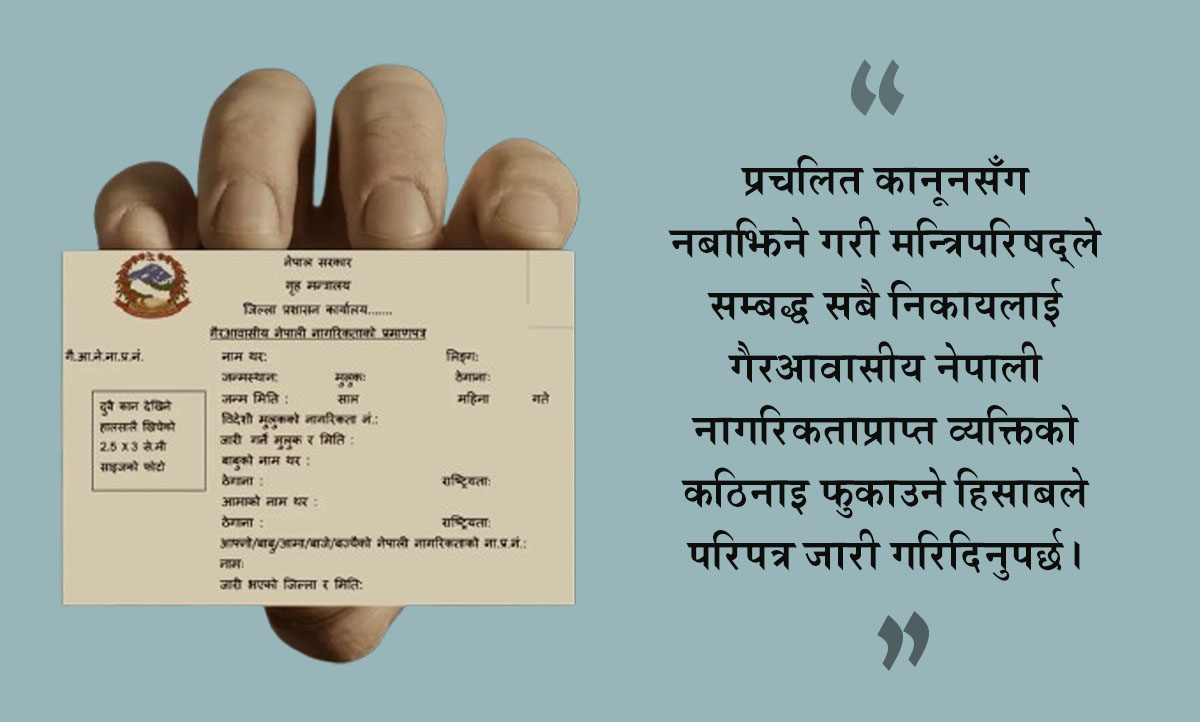 नेपाल सरकार
गृह मन्त्रालय
जिल्ला प्रशासन कार्यालय.......
गैरआवासीय नेपाली नागरिकताको प्रमाणपत्र
गै.आ.ने.ना.प्र.नं.
नाम थर: लिङ्ग:
जन्मस्थान: मुलुक: ठेगाना:
जन्म मिति : साल महिना गते
विदेशी मुलुकको नागरिकता नं.:
जारी गर्ने मुलुक र मिति :
बाबुको नाम थर :
ठेगाना : राष्ट्रियता:
आमाको नाम थर :
ठेगाना : राष्ट्रियता:
आफ्नो/बाबु/आमा/बाजे/बज्यैको नेपाली नागरिकताको ना.प्र.नं.:
नाम:
जारी भएको जिल्ला र मिति:
दुवै कान देखिने
हालसालै खिचेको
2.5 X 3 से.मी
साइजको फोटो
“
प्रचलित कानूनसँग
नबाझिने गरी मन्त्रिपरिषद्ले
सम्बद्ध सबै निकायलाई
गैरआवासीय नेपाली
नागरिकताप्राप्त व्यक्तिको
कठिनाइ फुकाउने हिसाबले
परिपत्र जारी गरिदिनुपर्छ।
”